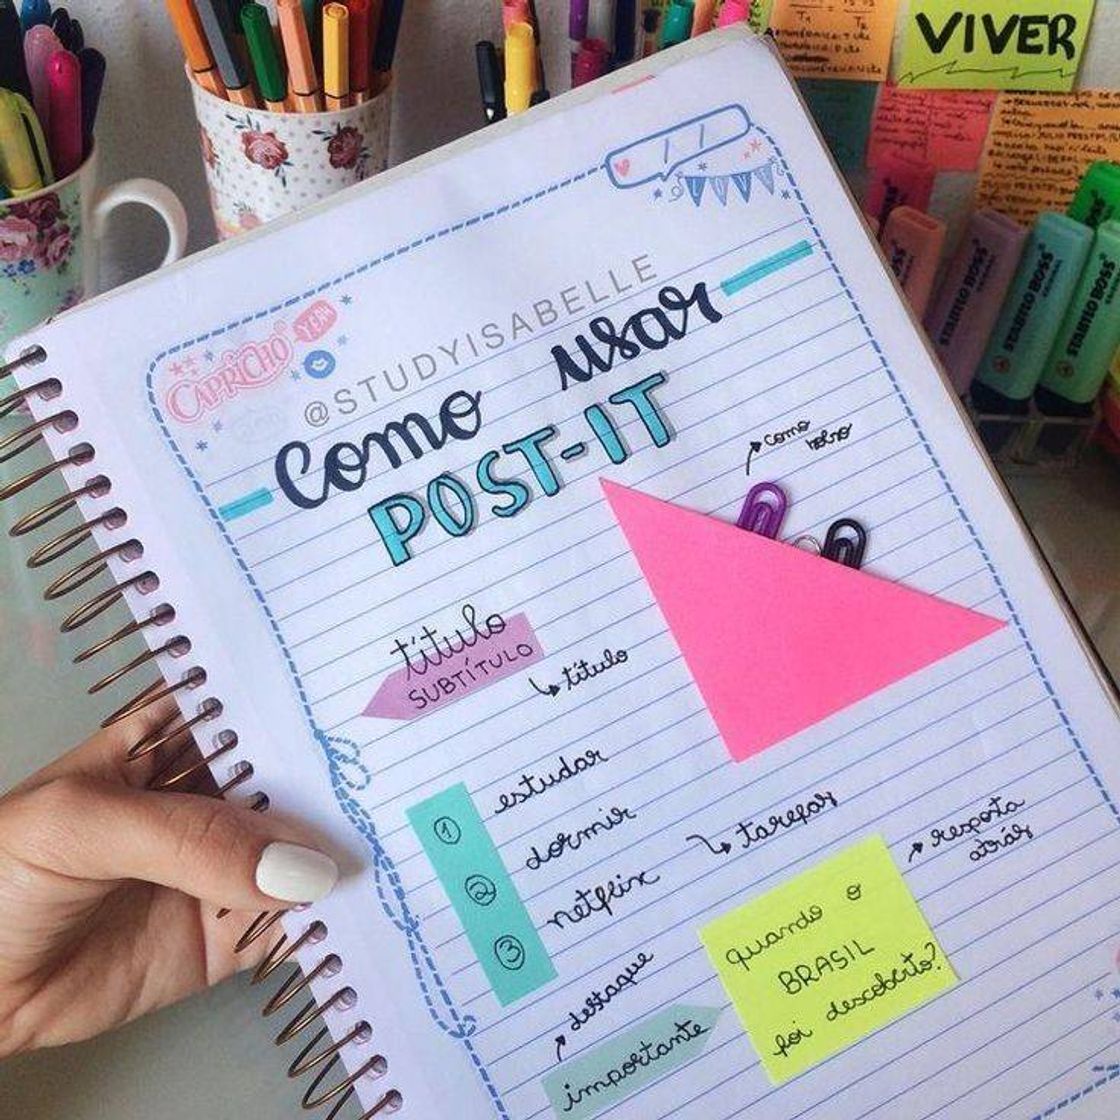 VIVER
CAPRICHO YEAH
@STUDYISABELLE
Como usar
POST-IT
como
bolso
título
SUBTÍTULO
título
1 estudar
2 dormir
3 netflix
tarefas
resposta
atrás
quando o
BRASIL
foi descoberto?
destaque
importante
STABILO BOSS
STABILO BOSS
STABILO BOSS